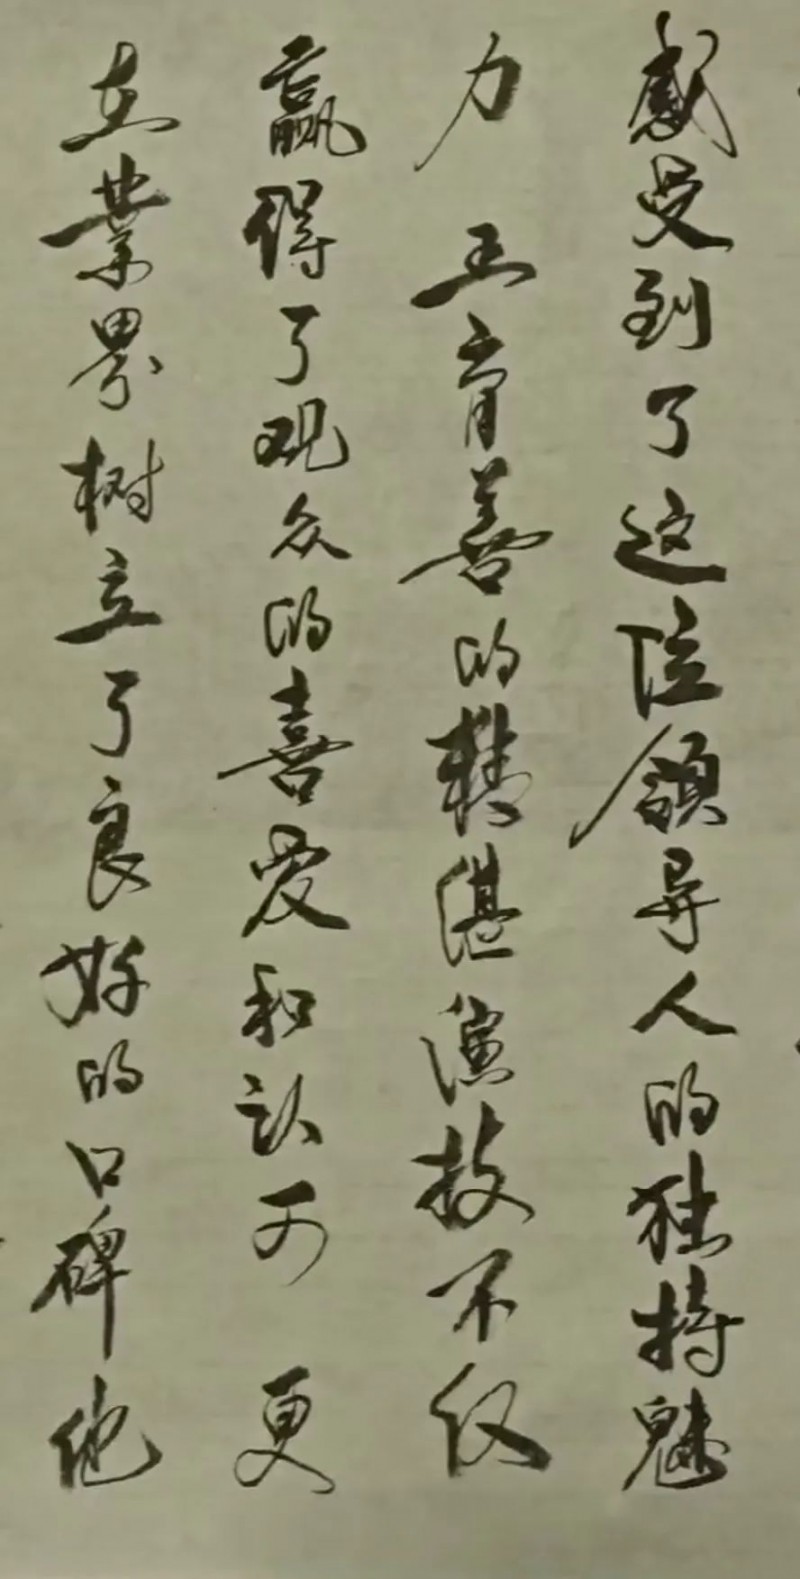 感受到了这位领导人的独特魅
力 王育善的精湛演技不仅
赢得了观众的喜爱和认可 更
在业界树立了良好的口碑他